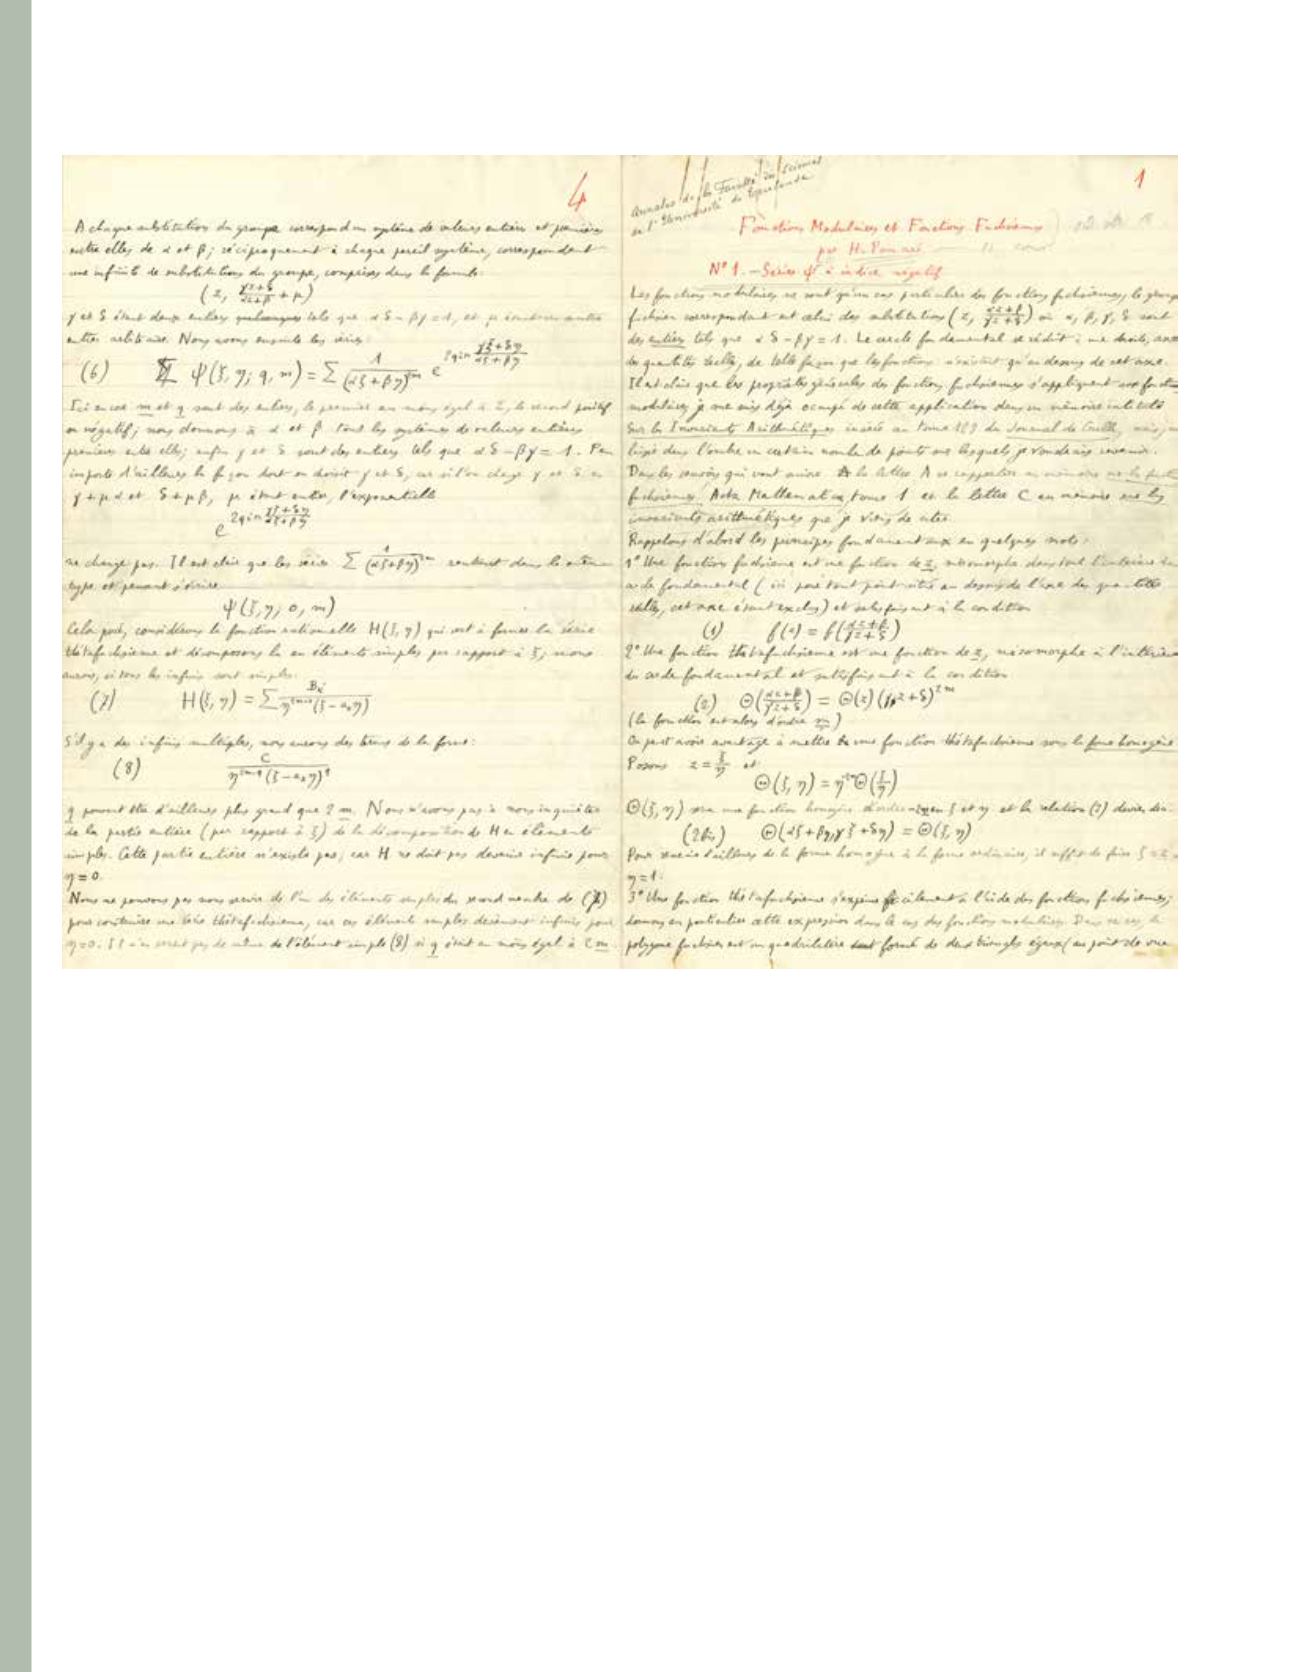 4
A chaque substitution du groupe correspond un système de valeurs entières et premières
entre elles de α et β; réciproquement à chaque pareil système, correspondent
une infinité de substitutions du groupe, comprises dans la formule:
(z, (γz+δ)/(αz+β) + μ)
γ et δ étant deux entiers quelconques tels que αδ - βγ = 1, et μ étant un autre
entier arbitraire. Nous avons ensuite les séries:
(6) Ψ(ξ, η; q, m) = Σ 1/(αξ+βη)^2m e^(2qiπ (γξ+δη)/(αξ+βη))
Ici encore m et q sont des entiers, le premier au moins égal à 2, le second positif
ou négatif; nous donnons à α et β tous les systèmes de valeurs entières
premières entre elles; enfin γ et δ sont des entiers tels que αδ - βγ = 1. Peu
importe d'ailleurs la façon dont on choisit γ et δ, car si l'on change γ et δ en
γ + μα et δ + μβ, μ étant entier, l'exponentielle
e^(2qiπ (γξ+δη)/(αξ+βη))
ne change pas. Il est clair que les séries Σ 1/(αξ+βη)^2m rentrent dans le même
type et peuvent s'écrire
Ψ(ξ, η; 0, m)
Cela posé, considérons la fonction rationnelle H(ξ, η) qui sert à former la série
thétafuchsienne et décomposons la en éléments simples par rapport à ξ; nous
aurons, si tous les infinis sont simples:
(7) H(ξ, η) = Σ B_k/(η^(2m-1)(ξ - a_k η))
S'il y a des infinis multiples, nous aurons des termes de la forme:
(8) C/(η^(2m-q)(ξ - a_k η)^q)
q pouvant être d'ailleurs plus grand que 2m. Nous n'avons pas à nous inquiéter
de la partie entière (par rapport à ξ) de la décomposition de H en éléments
simples. Cette partie entière n'existe pas; car H ne doit pas devenir infinie pour
η = 0.
Nous ne pouvons pas nous servir de l'un des éléments simples du second membre de (7)
pour construire une série thétafuchsienne, car ces éléments simples deviennent infinis pour
η=0. Il n'en serait pas de même de l'élément simple (8) si q était au moins égal à 2m
Annales de la Faculté des Sciences
de l'Université de
1
Fonctions Modulaires et Fonctions Fuchsiennes
par H. Poincaré
N° 1. - Séries Ψ à indice négatif
Les fonctions modulaires ne sont qu'un cas particulier des fonctions fuchsiennes, le groupe
fuchsien correspondant est celui des substitutions (z, (αz+β)/(γz+δ)) où α, β, γ, δ sont
des entiers tels que αδ - βγ = 1. Le cercle fondamental se réduit à une droite, axe
des quantités réelles, de telle façon que les fonctions n'existent qu'au dessus de cet axe.
Il est clair que les propriétés générales des fonctions fuchsiennes s'appliquent aux fonctions
modulaires; je me suis déjà occupé de cette application dans un mémoire intitulé
Sur les Invariants Arithmétiques inséré au tome 129 du Journal de Crelle,
laissé dans l'ombre un certain nombre de points sur lesquels je voudrais revenir.
Dans les renvois qui vont suivre la lettre A se rapportera au mémoire sur les fonctions
fuchsiennes, Acta Mathematica, tome 1 et la lettre C au mémoire sur les
invariants arithmétiques que je viens de citer.
Rappelons d'abord les principes fondamentaux en quelques mots:
1° Une fonction fuchsienne est une fonction de z, méromorphe dans tout l'intérieur du
cercle fondamental (ici pour tout point situé au dessus de l'axe des quantités
réelles, cet axe étant exclus) et satisfaisant à la condition
(1) f(z) = f((αz+β)/(γz+δ))
2° Une fonction thétafuchsienne est une fonction de z, méromorphe à l'intérieur
du cercle fondamental et satisfaisant à la condition
(2) Θ((αz+β)/(γz+δ)) = Θ(z)(γz+δ)^2m
(la fonction est alors d'ordre m)
On peut avoir avantage à mettre une fonction thétafuchsienne sous la forme homogène
Posons z = ξ/η et
Θ(ξ, η) = η^-2m Θ(ξ/η)
Θ(ξ, η) sera une fonction homogène d'ordre -2m en ξ et η et la relation (2) deviendra
(2bis) Θ(αξ+βη, γξ+δη) = Θ(ξ, η)
Pour revenir d'ailleurs de la forme homogène à la forme ordinaire, il suffit de faire ξ = z,
η = 1.
3° Une fonction thétafuchsienne s'exprime facilement à l'aide des fonctions fuchsiennes;
donnons en particulier cette expression dans le cas des fonctions modulaires. Dans ce cas le
polygone fuchsien est un quadrilatère formé de deux triangles égaux (au point de vue